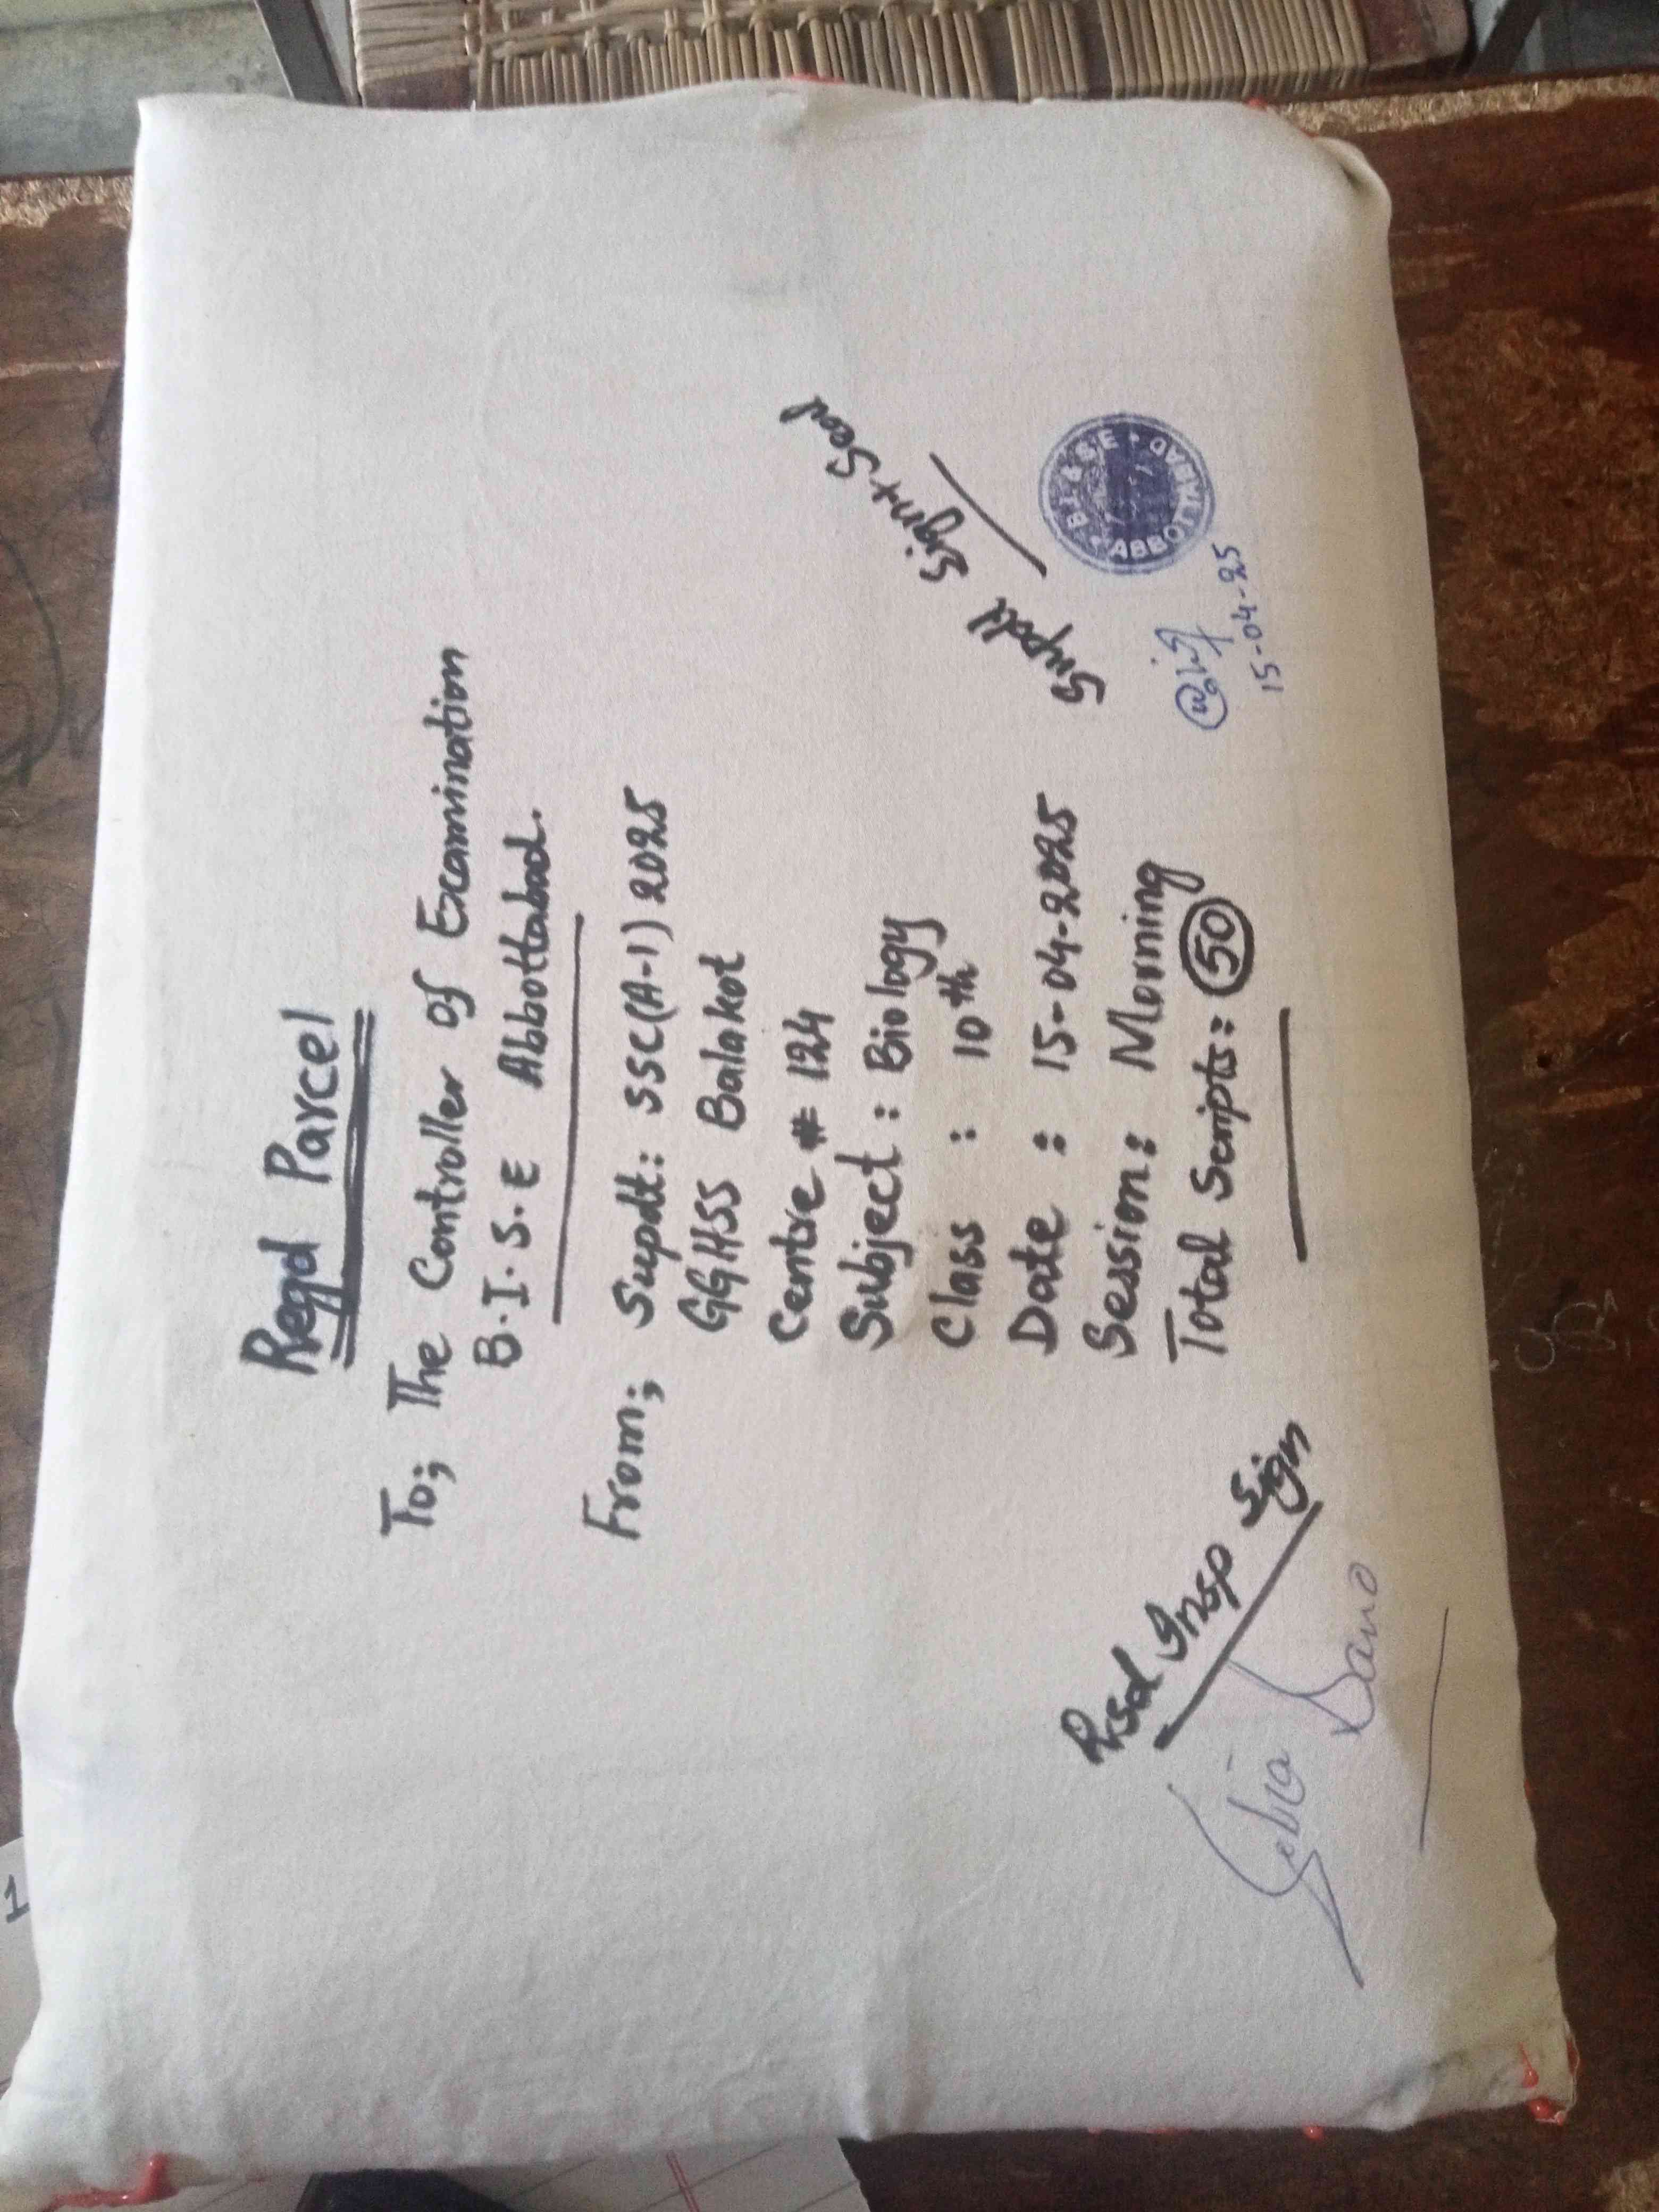 Regd Parcel
To; The Controller of Examination
B.I.S.E Abbottabad.
From; Supdt: SSC(A-1) 2025
GGHSS Balakot
Centre # 124
Subject : Biology
Class : 10th
Date : 15-04-2025
Session: Morning
Total Scripts: 50
Rsd Insp Sign
Bano
Supdt Sign + Seal
B.I.&S.E
ABBOTTABAD
15-04-25
1